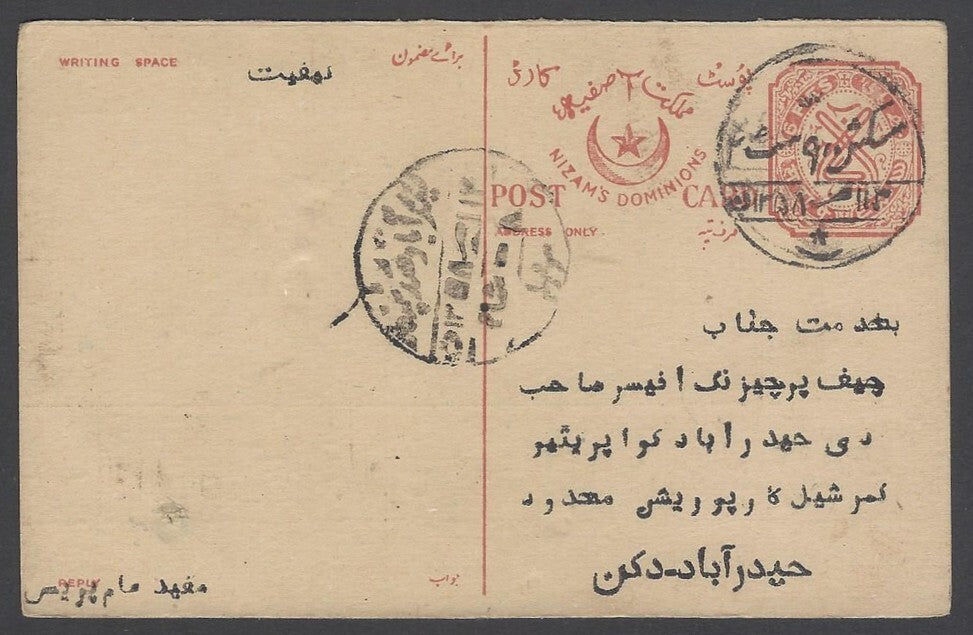 WRITING SPACE
برائے مضمون
پوسٹ کارڈ
مملکت آصفیہ
NIZAM'S DOMINIONS
POST CARD
ADDRESS ONLY
صرف پتہ
بخدمت جناب
چیف پرچیزنگ افیسر صاحب
دی حیدرآباد کواپریٹیو
کمرشیل کارپوریشن محدود
حیدرآباد-دکن
REPLY
جواب
مفید عام پریس